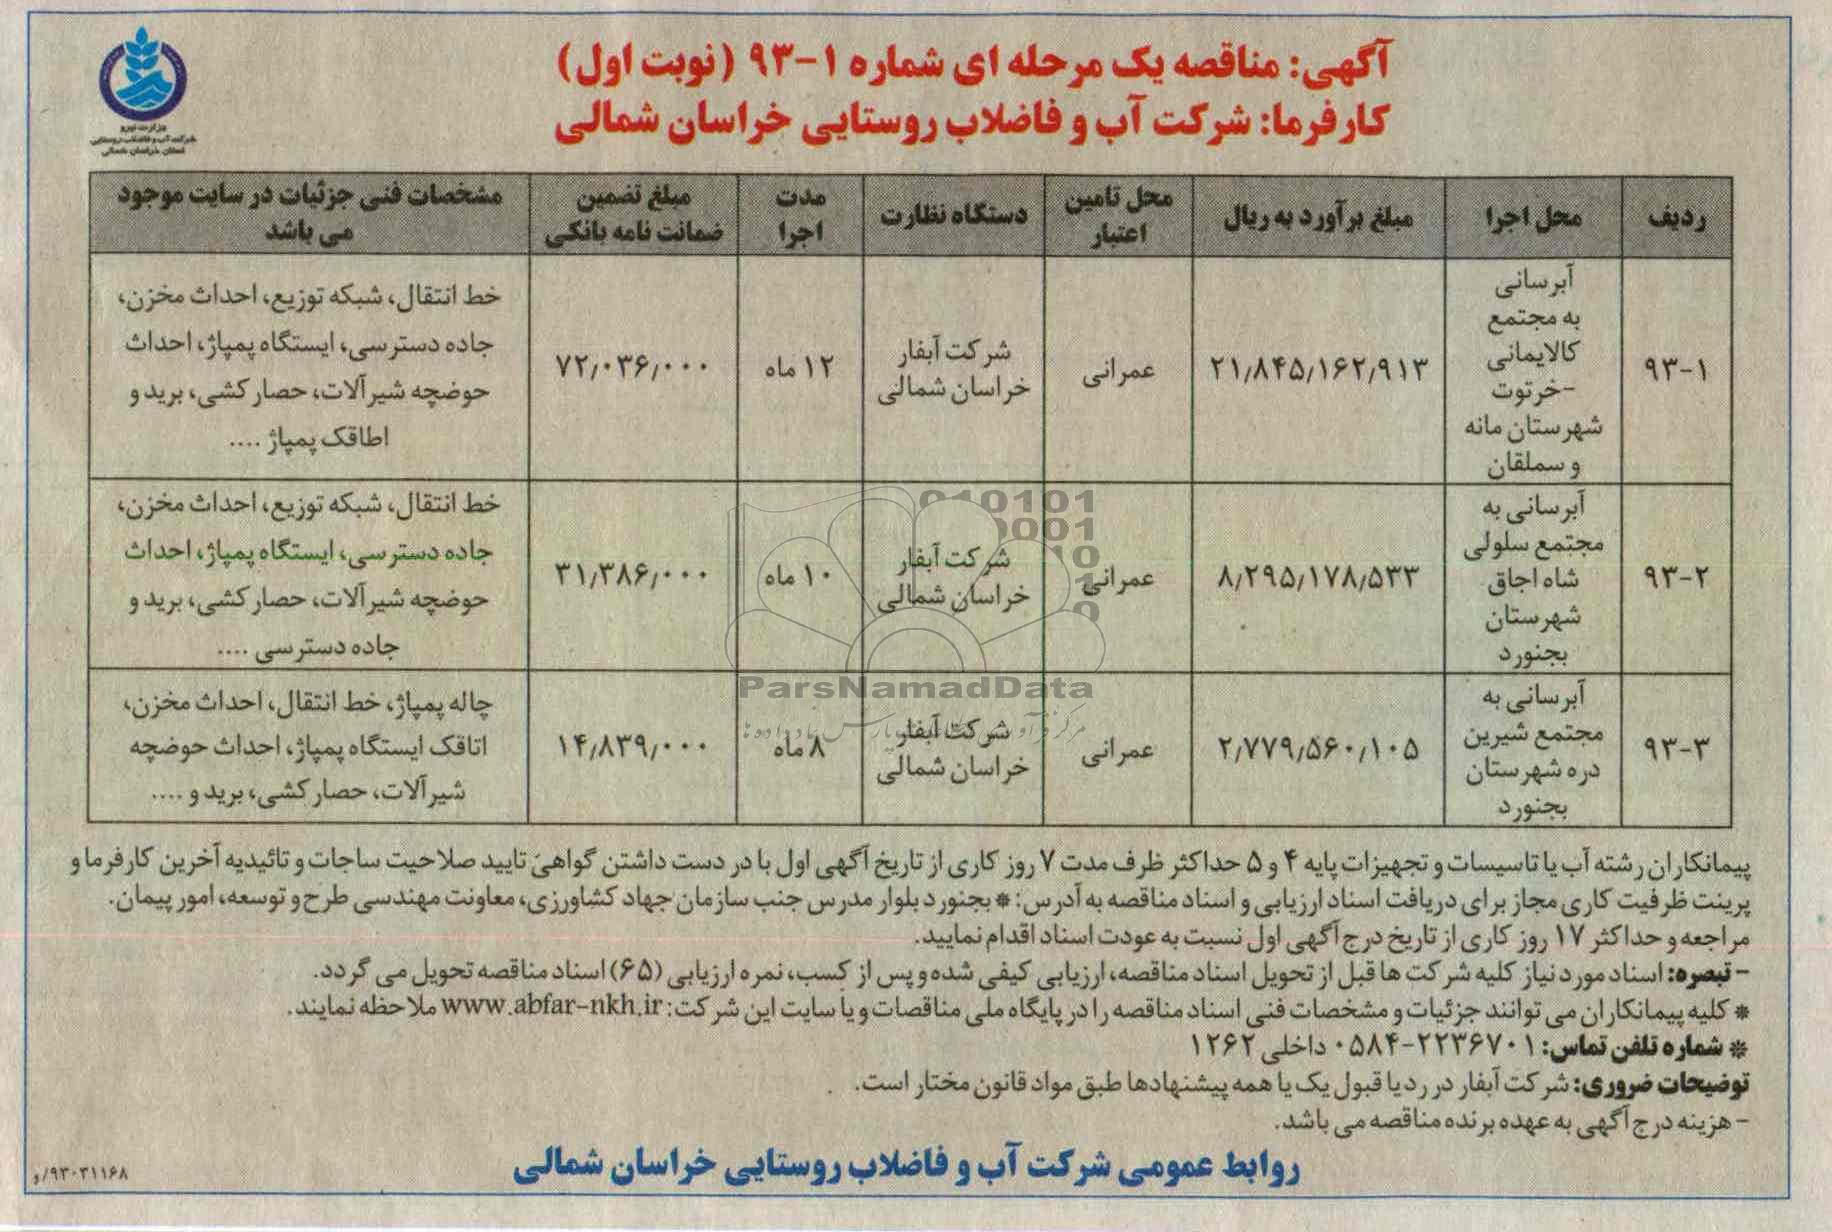 آگهی: مناقصه یک مرحله ای شماره ۱-۹۳ (نوبت اول)
کارفرما: شرکت آب و فاضلاب روستایی خراسان شمالی
وزارت نیرو
شرکت آب و فاضلاب روستایی
استان خراسان شمالی
ردیف
محل اجرا
مبلغ برآورد به ریال
محل تامین
اعتبار
دستگاه نظارت
مدت
اجرا
مبلغ تضمین
ضمانت نامه بانکی
مشخصات فنی جزئیات در سایت موجود
می باشد
۹۳-۱
آبرسانی
به مجتمع
کالایمانی
-خرتوت
شهرستان مانه
و سملقان
۲۱٫۸۴۵٫۱۶۲٫۹۱۳
عمرانی
شرکت آبفار
خراسان شمالی
۱۲ ماه
۷۲٫۰۳۶٫۰۰۰
خط انتقال، شبکه توزیع، احداث مخزن،
جاده دسترسی، ایستگاه پمپاژ، احداث
حوضچه شیرآلات، حصار کشی، برید و
اطاقک پمپاژ ....
۹۳-۲
آبرسانی به
مجتمع سلولی
شاه اجاق
شهرستان
بجنورد
۸٫۲۹۵٫۱۷۸٫۵۳۳
عمرانی
شرکت آبفار
خراسان شمالی
۱۰ ماه
۳۱٫۳۸۶٫۰۰۰
خط انتقال، شبکه توزیع، احداث مخزن،
جاده دسترسی، ایستگاه پمپاژ، احداث
حوضچه شیرآلات، حصار کشی، برید و
جاده دسترسی ....
۹۳-۳
آبرسانی به
مجتمع شیرین
دره شهرستان
بجنورد
۲٫۷۷۹٫۵۶۰٫۱۰۵
عمرانی
شرکت آبفار
خراسان شمالی
۸ ماه
۱۴٫۸۳۹٫۰۰۰
چاله پمپاژ، خط انتقال، احداث مخزن،
اتاقک ایستگاه پمپاژ، احداث حوضچه
شیرآلات، حصار کشی، برید و ....
ParsNamadData
پیمانکاران رشته آب یا تاسیسات و تجهیزات پایه ۴ و ۵ حداکثر ظرف مدت ۷ روز کاری از تاریخ آگهی اول با در دست داشتن گواهی تایید صلاحیت ساجات و تائیدیه آخرین کارفرما و
پرینت ظرفیت کاری مجاز برای دریافت اسناد ارزیابی و اسناد مناقصه به آدرس: * بجنورد بلوار مدرس جنب سازمان جهاد کشاورزی، معاونت مهندسی طرح و توسعه، امور پیمان.
مراجعه و حداکثر ۱۷ روز کاری از تاریخ درج آگهی اول نسبت به عودت اسناد اقدام نمایید.
- تبصره: اسناد مورد نیاز کلیه شرکت ها قبل از تحویل اسناد مناقصه، ارزیابی کیفی شده و پس از کسب، نمره ارزیابی (۶۵) اسناد مناقصه تحویل می گردد.
* کلیه پیمانکاران می توانند جزئیات و مشخصات فنی اسناد مناقصه را در پایگاه ملی مناقصات و یا سایت این شرکت: www.abfar-nkh.ir ملاحظه نمایند.
* شماره تلفن تماس: ۲۲۳۶۷۰۱-۰۵۸۴ داخلی ۱۲۶۲
توضیحات ضروری: شرکت آبفار در رد یا قبول یک یا همه پیشنهادها طبق مواد قانون مختار است.
- هزینه درج آگهی به عهده برنده مناقصه می باشد.
روابط عمومی شرکت آب و فاضلاب روستایی خراسان شمالی
۹۳۰۳۱۱۶۸/و